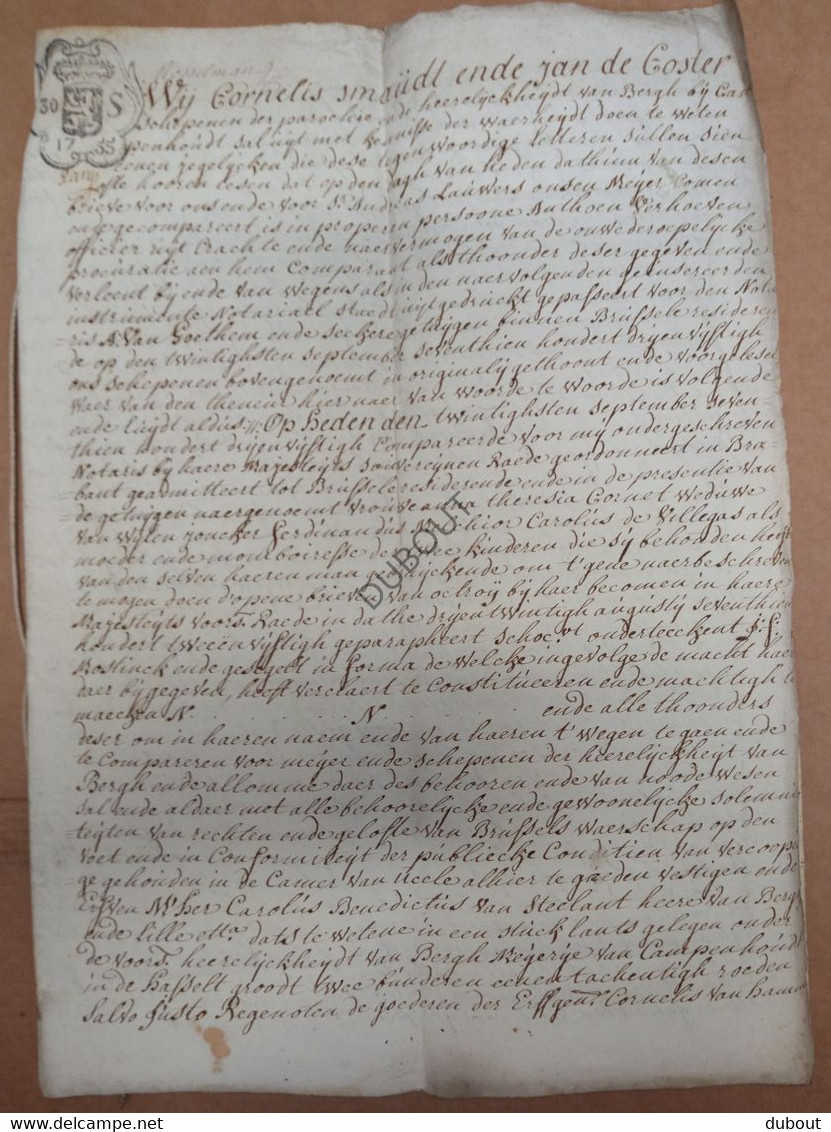 30 S
17 55
Wij Cornelis smaüdt ende jan de Coster
schepenen der parochie ende heerelijckheijdt van Bergh bij Cam
penhoüdt salüijt met kennisse der waerheijdt doen te weten
eenen jegelijcken die dese tegenwoordige letteren süllen sien
ofte hooren lesen dat op den dagh van heden dathüm van desen
brieve voor ons ende voor Sr. Andreas Laüwers onsen Meijer Comen
ende gecompareert is in properen persoone Anthoen Verhoeven
officier üijt Crachte ende naer vermogen van de onwederoepelijcke
procüratie aen hem Comparant als thoonder deser gegeven ende
verleent bij ende van wegens als in den naervolgenden geinsereerden
instrümente Notariael staedt üijtgedrückt gepasseert voor den Nota
ris A. Van Goethem ende seckere getüijgen binnen Brüssele residereN
de op den twintighsten september seventhien hondert drijenvijftigh
ons schepenen bovengenoemt in originalij gethoont ende voorgelesen
waer van den theneür hier naer van woorde te woorde is volgende
ende lüijdt aldüs :/: Op heden den twintighsten september seven
thien hondert drijenvijftigh Compareerde voor mij ondergeschreven
Notaris bij haere Majesteijts soüvereijnen Raede geordonneert in Bra
bant geadmitteert tot Brüssele residerende ende in de presentie van
de getüijgen naergenoemt vroüwe anna theresia Cornet wedüwe
van wijlen joncker Ferdinandüs Melchior Carolüs de Villegas als
moeder ende momboiresse de twee kinderen die sij behonden heeft
van den selven haeren man gebrückende om t'gene naerbeschreven
te mogen doen d'opene brieven van octroij bij haer becomen in haere
Majesteijts voors. Raede in dathe drijentwintigh aügüstij seventhien
hondert tweeënvijftigh geparapheert schoc.vt onderteeckent J: F:
Mostinck ende gesegelt in forma de welcke ingevolge de macht haer
daer bij gegeven, heeft verclaert te Constitüeeren ende machtigh te
maecken N. . . . . . . N . . . . . . . ende alle thoonders
deser om in haeren naem ende van haeren t'wegen te gaen ende
te Compareren voor meijer ende schepenen der heerelijckheijt van
Bergh ende allomme daer des behooren ende van noode wesen
sal ende aldaer met alle behoorelijcke ende gewoonelijcke solemni
teijten van rechten ende gelofte van Brüssels waerschap op den
voet ende in Conformiteijt der püblieke Conditien van vercoopin
ge gehouden in de Camer van üccle alhier te goeden vestigen ende
Erfven Mr. Her Carolüs Benedictüs van Steelant heere van Bergh
ende lille etta. dats te wetene in een stück lants gelegen onder
de voors. heerelijckheijdt van Bergh Meijerije van Campenhoüdt
in de hasselt groodt twee bünderen eenentachentigh roeden
salvo jüsto Regenoten de goederen der Erffgen. Cornelis van hamme
DUBOUT
dubout
www.delcampe.net